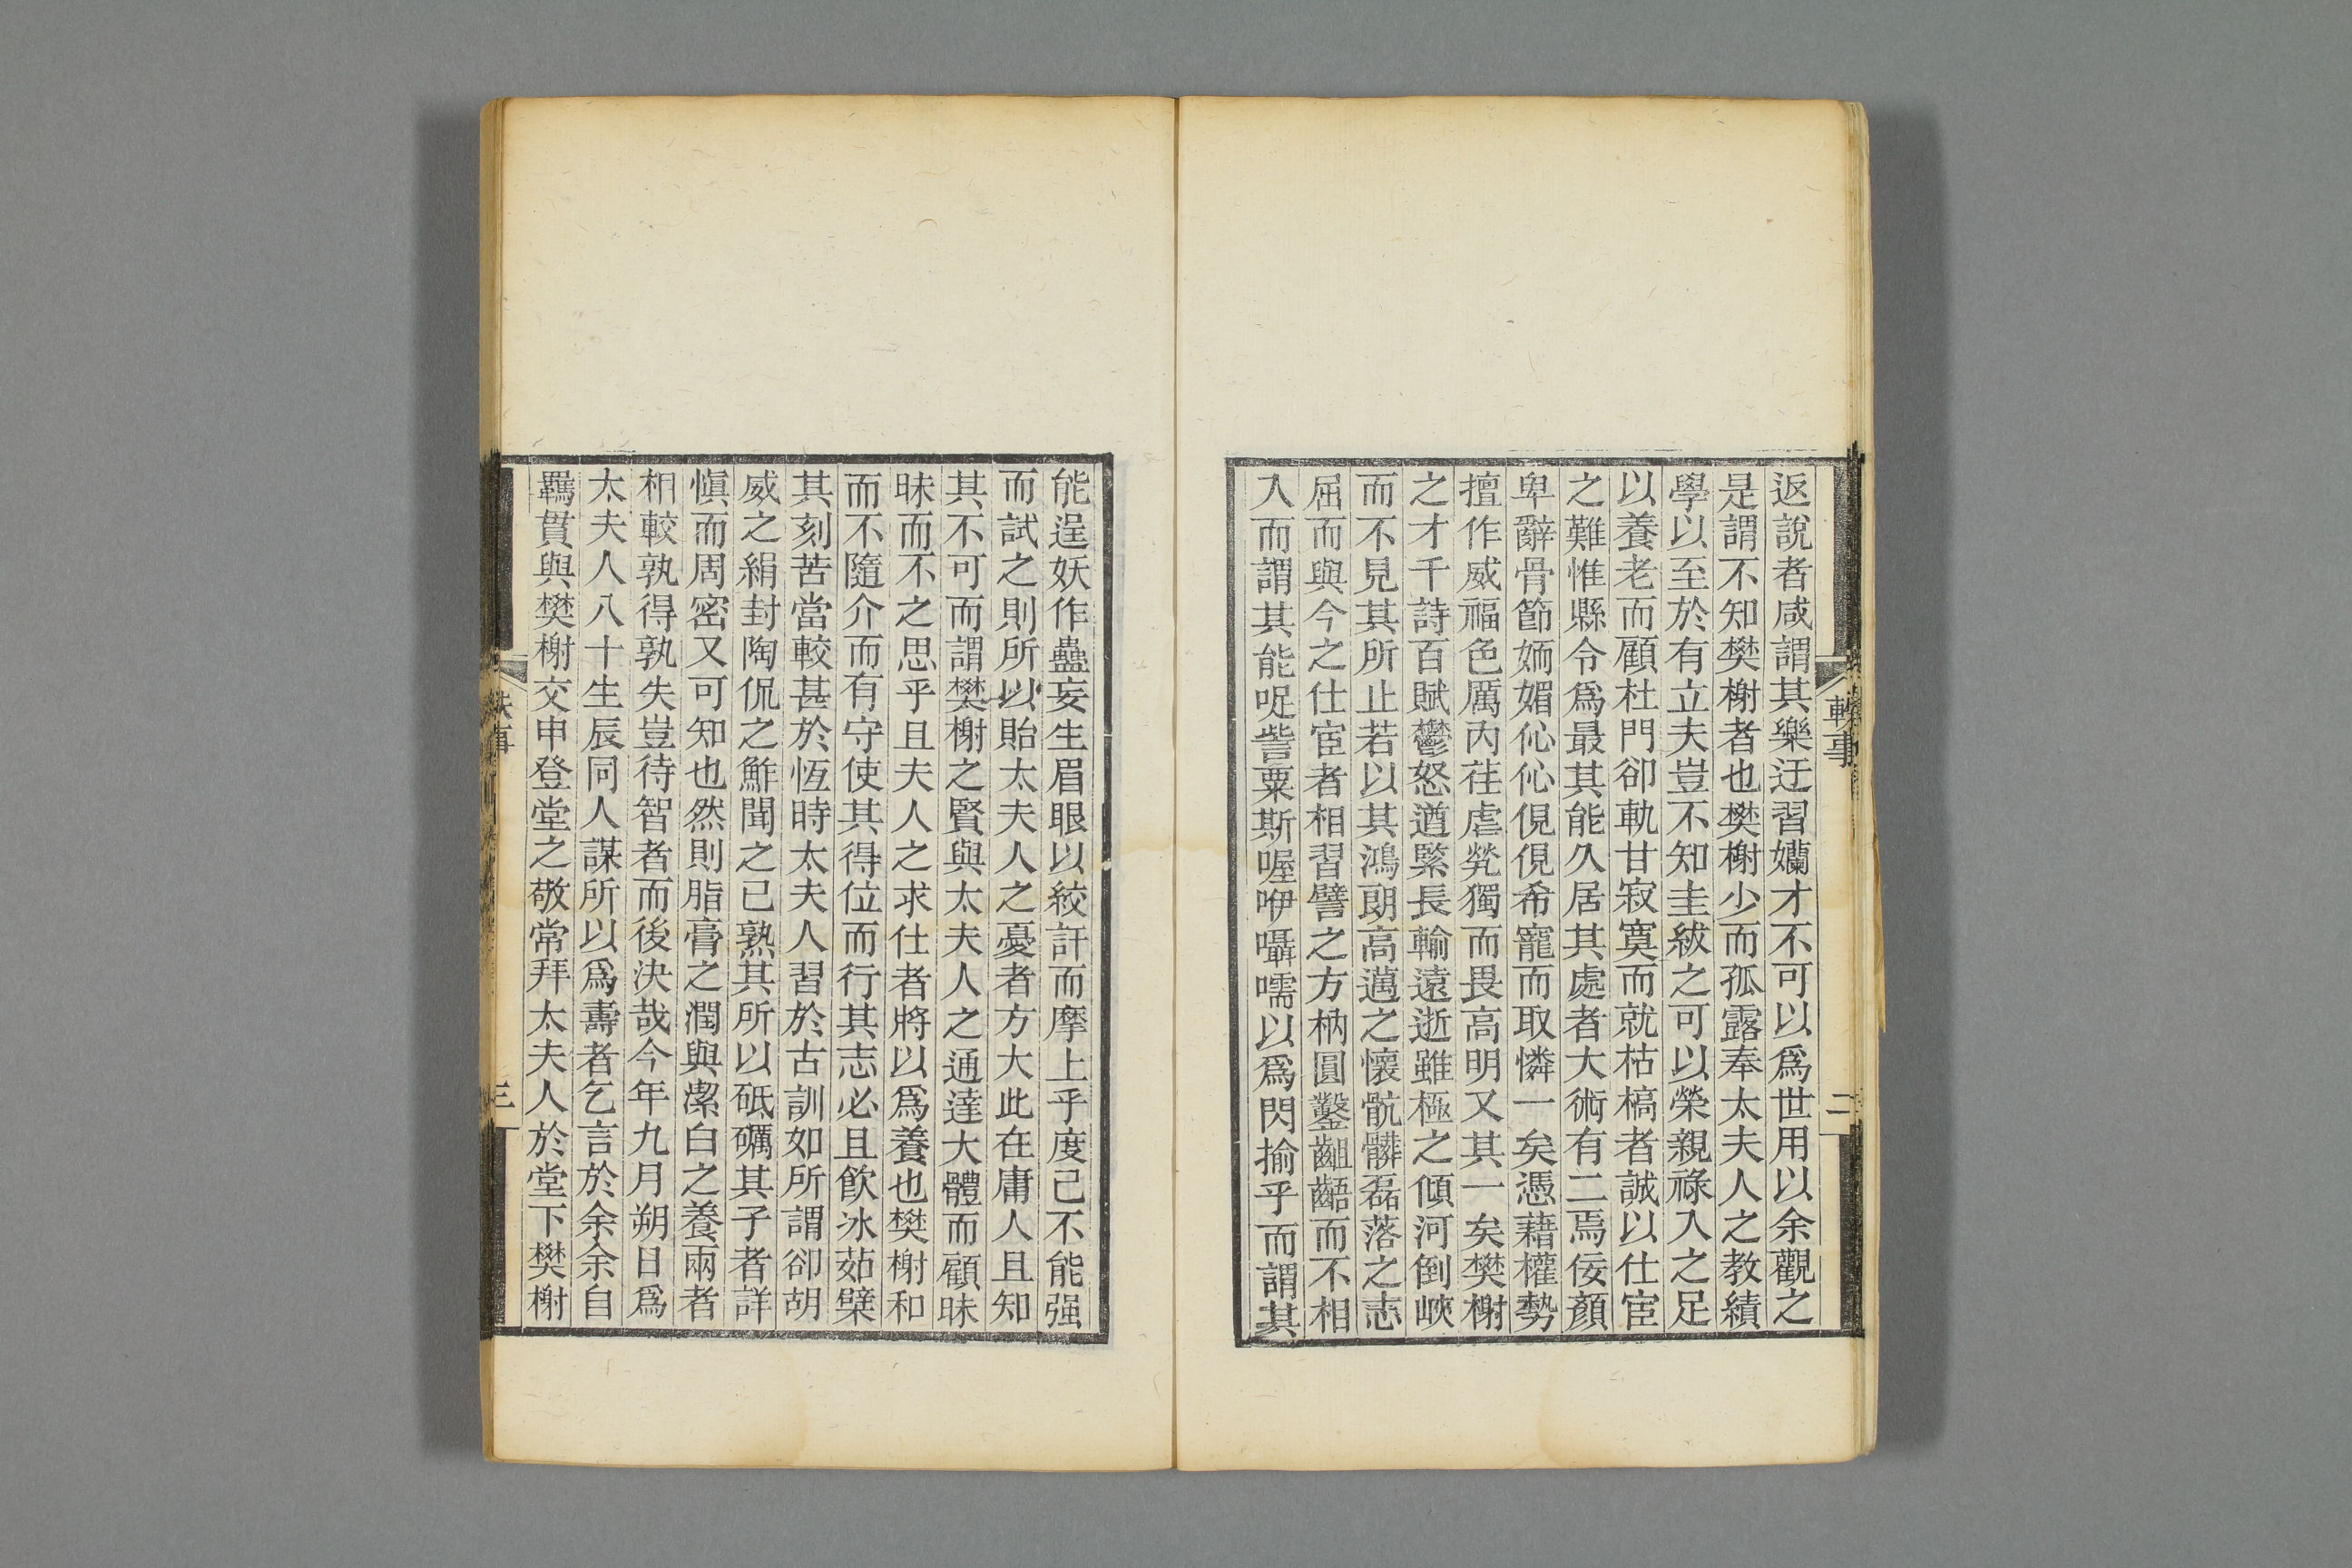 返說者咸謂其樂迂習孏才不可以爲世用以余觀之
是謂不知樊榭者也樊榭少而孤露奉太夫人之教績
學以至於有立夫豈不知圭紱之可以榮親祿入之足
以養老而顧杜門卻軌甘寂寞而就枯槁者誠以仕宦
之難惟縣令爲最其能久居其處者大術有二焉佞顏
卑辭骨節婳媚伈伈俔俔希寵而取憐一矣憑藉權勢
擅作威福色厲内荏虐煢獨而畏高明又其一矣樊榭
之才千詩百賦鬱怒遒緊長輸遠逝雖極之傾河倒峽
而不見其所止若以其鴻朗高邁之懷骯髒磊落之志
屈而與今之仕宦者相習譬之方枘圓鑿齟齬而不相
入而謂其能哫訾粟斯喔咿囁嚅以爲閃揄乎而謂其
軼事
二
能逞妖作蠱妄生眉眼以絞訐而摩上乎度己不能强
而試之則所以貽太夫人之憂者方大此在庸人且知
其不可而謂樊榭之賢與太夫人之通達大體而顧昧
昧而不之思乎且夫人之求仕者將以爲養也樊榭和
而不隨介而有守使其得位而行其志必且飲冰茹檗
其刻苦當較甚於恆時太夫人習於古訓如所謂卻胡
威之絹封陶侃之鮓聞之已熟其所以砥礪其子者詳
愼而周密又可知也然則脂膏之潤與潔白之養兩者
相較孰得孰失豈待智者而後決哉今年九月朔日爲
太夫人八十生辰同人謀所以爲壽者乞言於余余自
羈貫與樊榭交申登堂之敬常拜太夫人於堂下樊榭
軼事
三